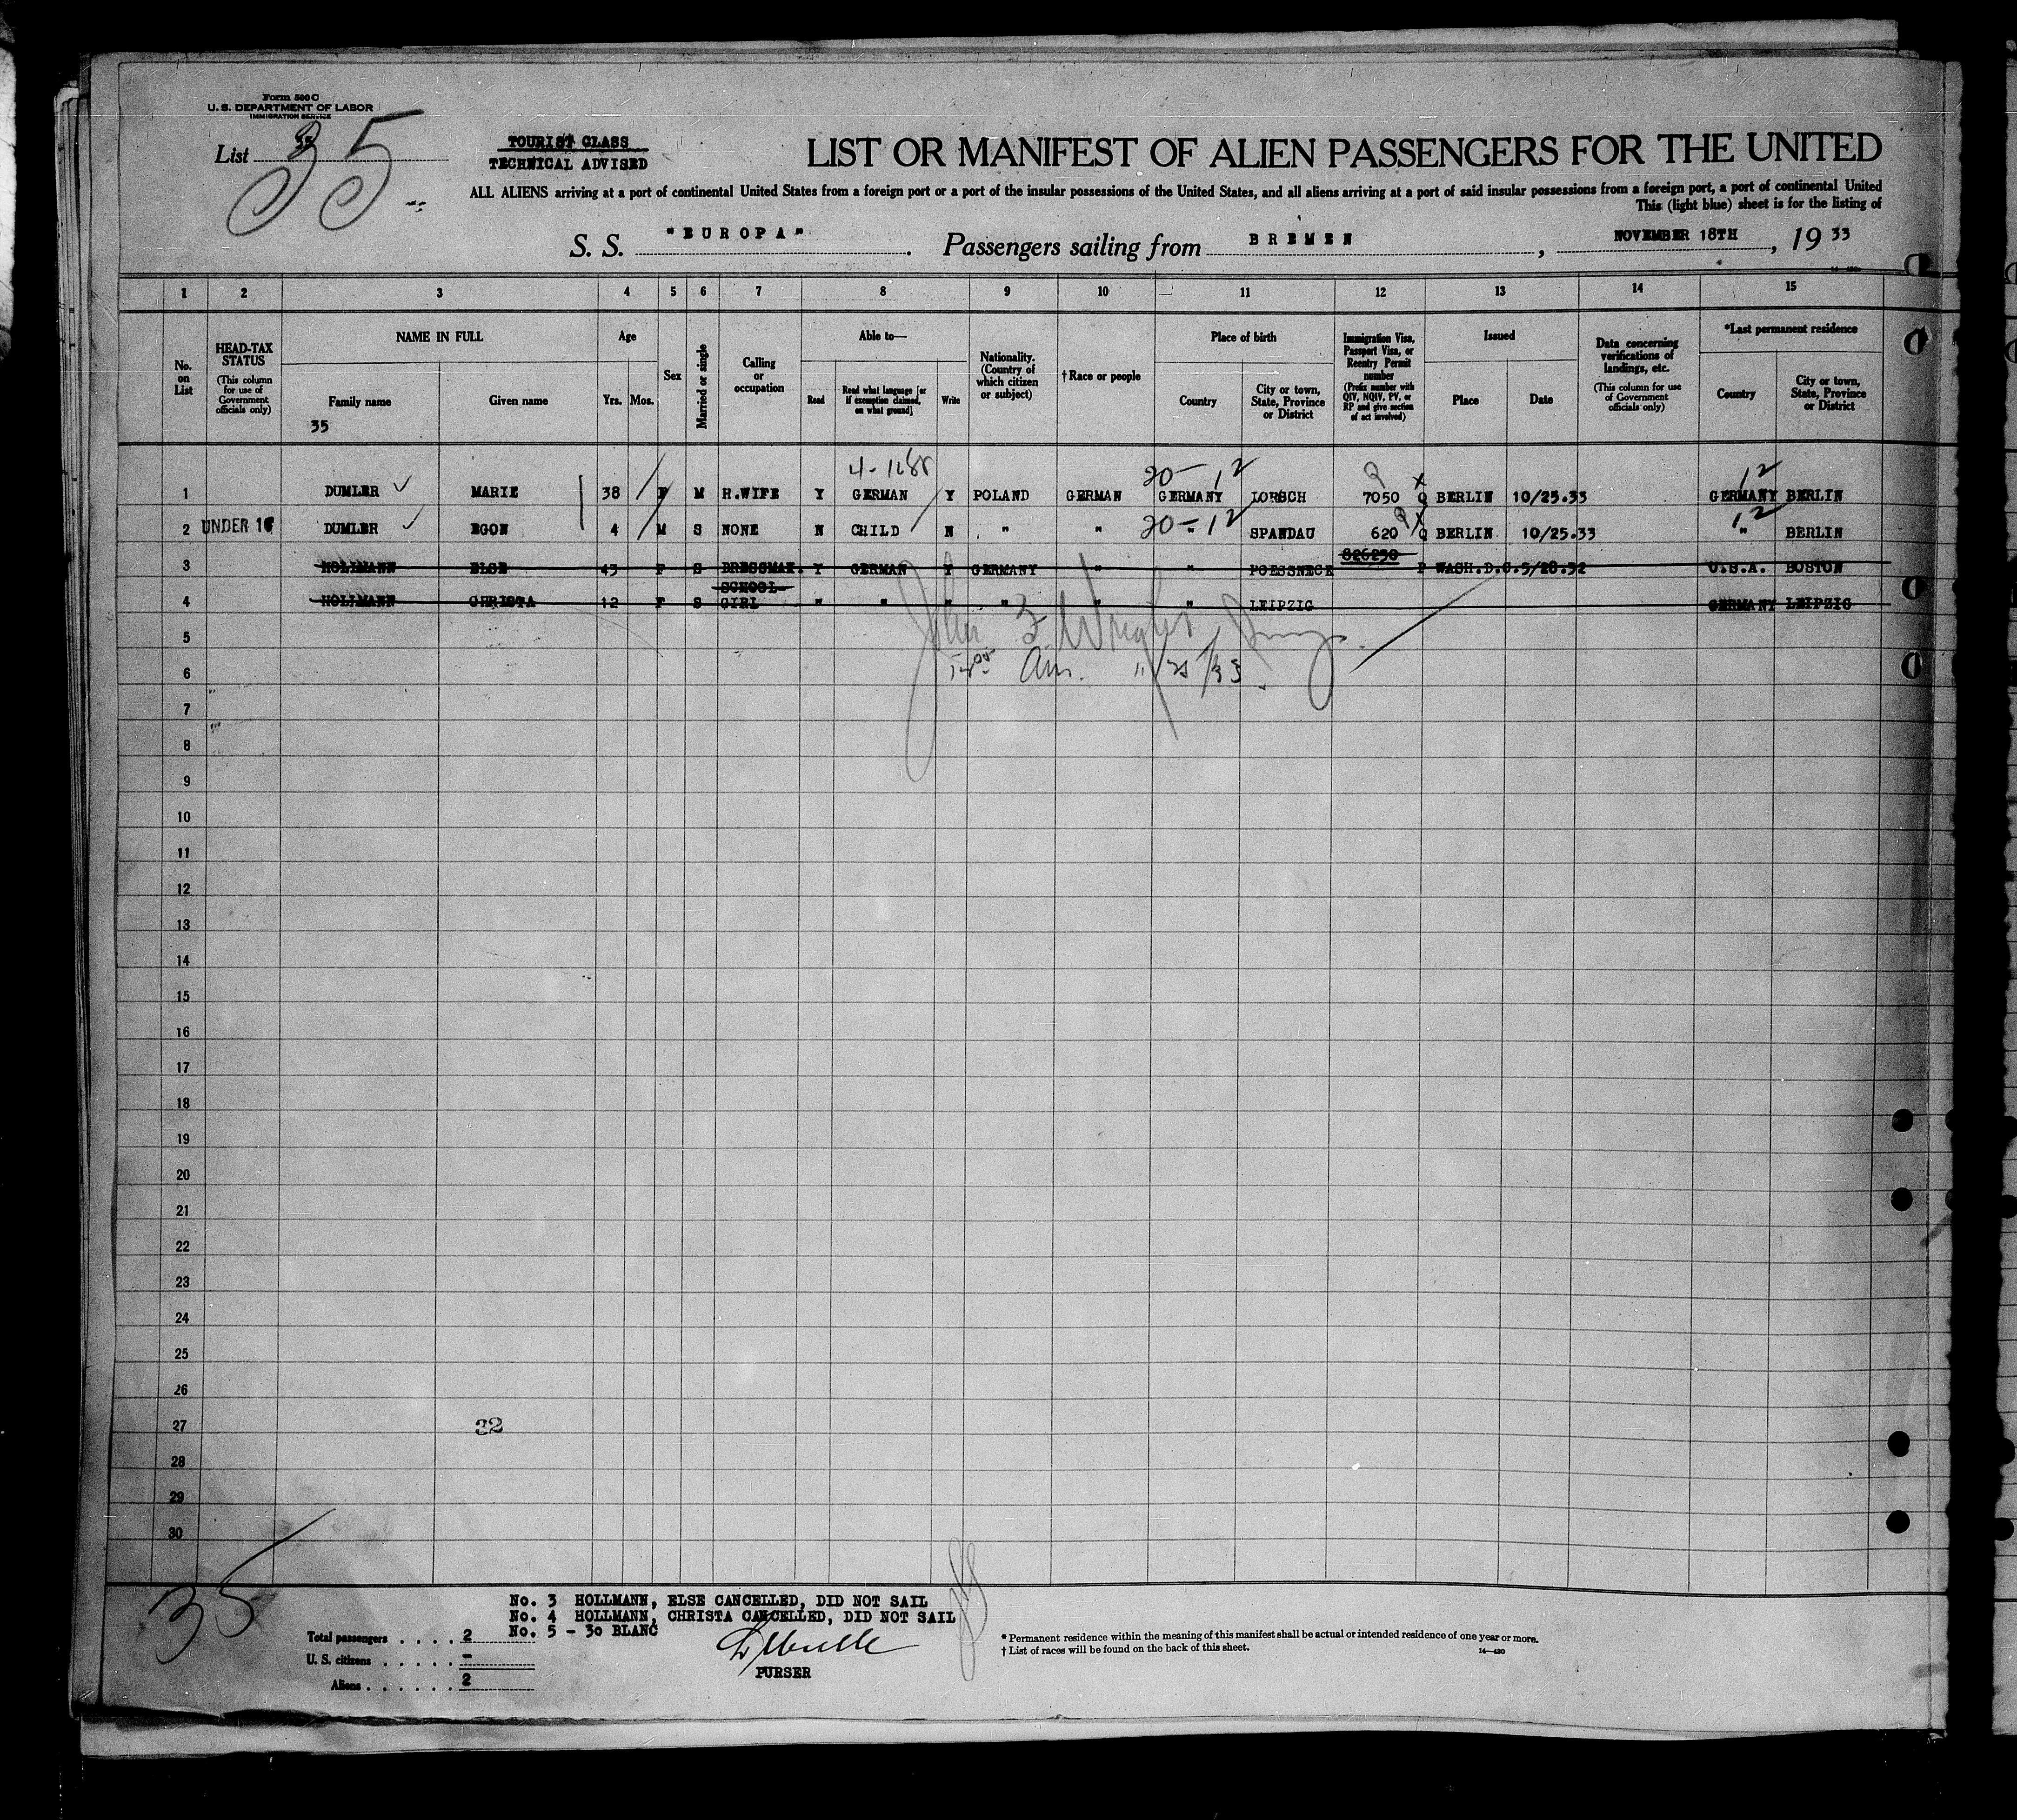 Form 500 C
U. S. DEPARTMENT OF LABOR
IMMIGRATION SERVICE
List 35
35
TOURIST CLASS
TECHNICAL ADVISED
LIST OR MANIFEST OF ALIEN PASSENGERS FOR THE UNITED
ALL ALIENS arriving at a port of continental United States from a foreign port or a port of the insular possessions of the United States, and all aliens arriving at a port of said insular possessions from a foreign port, a port of continental United
This (light blue) sheet is for the listing of
S. S. "EUROPA". Passengers sailing from BREMEN, NOVEMBER 18TH, 19 33
1 2 3 4 5 6 7 8 9 10 11 12 13 14 15
No. on List
HEAD-TAX STATUS (This column for use of Government officials only)
NAME IN FULL
Family name Given name
35
Age
Yrs. Mos.
Sex
Married or single
Calling or occupation
Able to—
Read Read what language [or if exemption claimed, on what ground] Write
Nationality. (Country of which citizen or subject)
† Race or people
Place of birth
Country City or town, State, Province or District
Immigration Visa, Passport Visa, or Reentry Permit number (Prefix number with QIV, NQIV, PV, or RP and give section of act involved)
Issued
Place Date
Data concerning verifications of landings, etc. (This column for use of Government officials only)
*Last permanent residence
Country City or town, State, Province or District
20-12 12
1 DUMLER MARIE 38 F M H.WIFE Y GERMAN Y POLAND GERMAN GERMANY LORSCH 7050 Q BERLIN 10/25.33 GERMANY BERLIN
20-12 12
2 UNDER 16 DUMLER EGON 4 M S NONE N CHILD N " " " SPANDAU 620 Q BERLIN 10/25.33 " BERLIN
3 HOLLMANN ELSE 43 F S DRESSMAK. Y GERMAN Y GERMANY " " POESSNECK 826230 P WASH.D.C. 5/28.32 U.S.A. BOSTON
4 HOLLMANN CHRISTA 12 F S SCHOOL GIRL " " " " " " LEIPZIG GERMANY LEIPZIG
5
6
7
8
9
10
11
12
13
14
15
16
17
18
19
20
21
22
23
24
25
26
27 32
28
29
30
35
No. 3 HOLLMANN, ELSE CANCELLED, DID NOT SAIL
No. 4 HOLLMANN, CHRISTA CANCELLED, DID NOT SAIL
No. 5 - 30 BLANC
Total passengers . . . . 2
U. S. citizens . . . . . -
Aliens . . . . . . 2
PURSER
* Permanent residence within the meaning of this manifest shall be actual or intended residence of one year or more.
† List of races will be found on the back of this sheet.
14—430